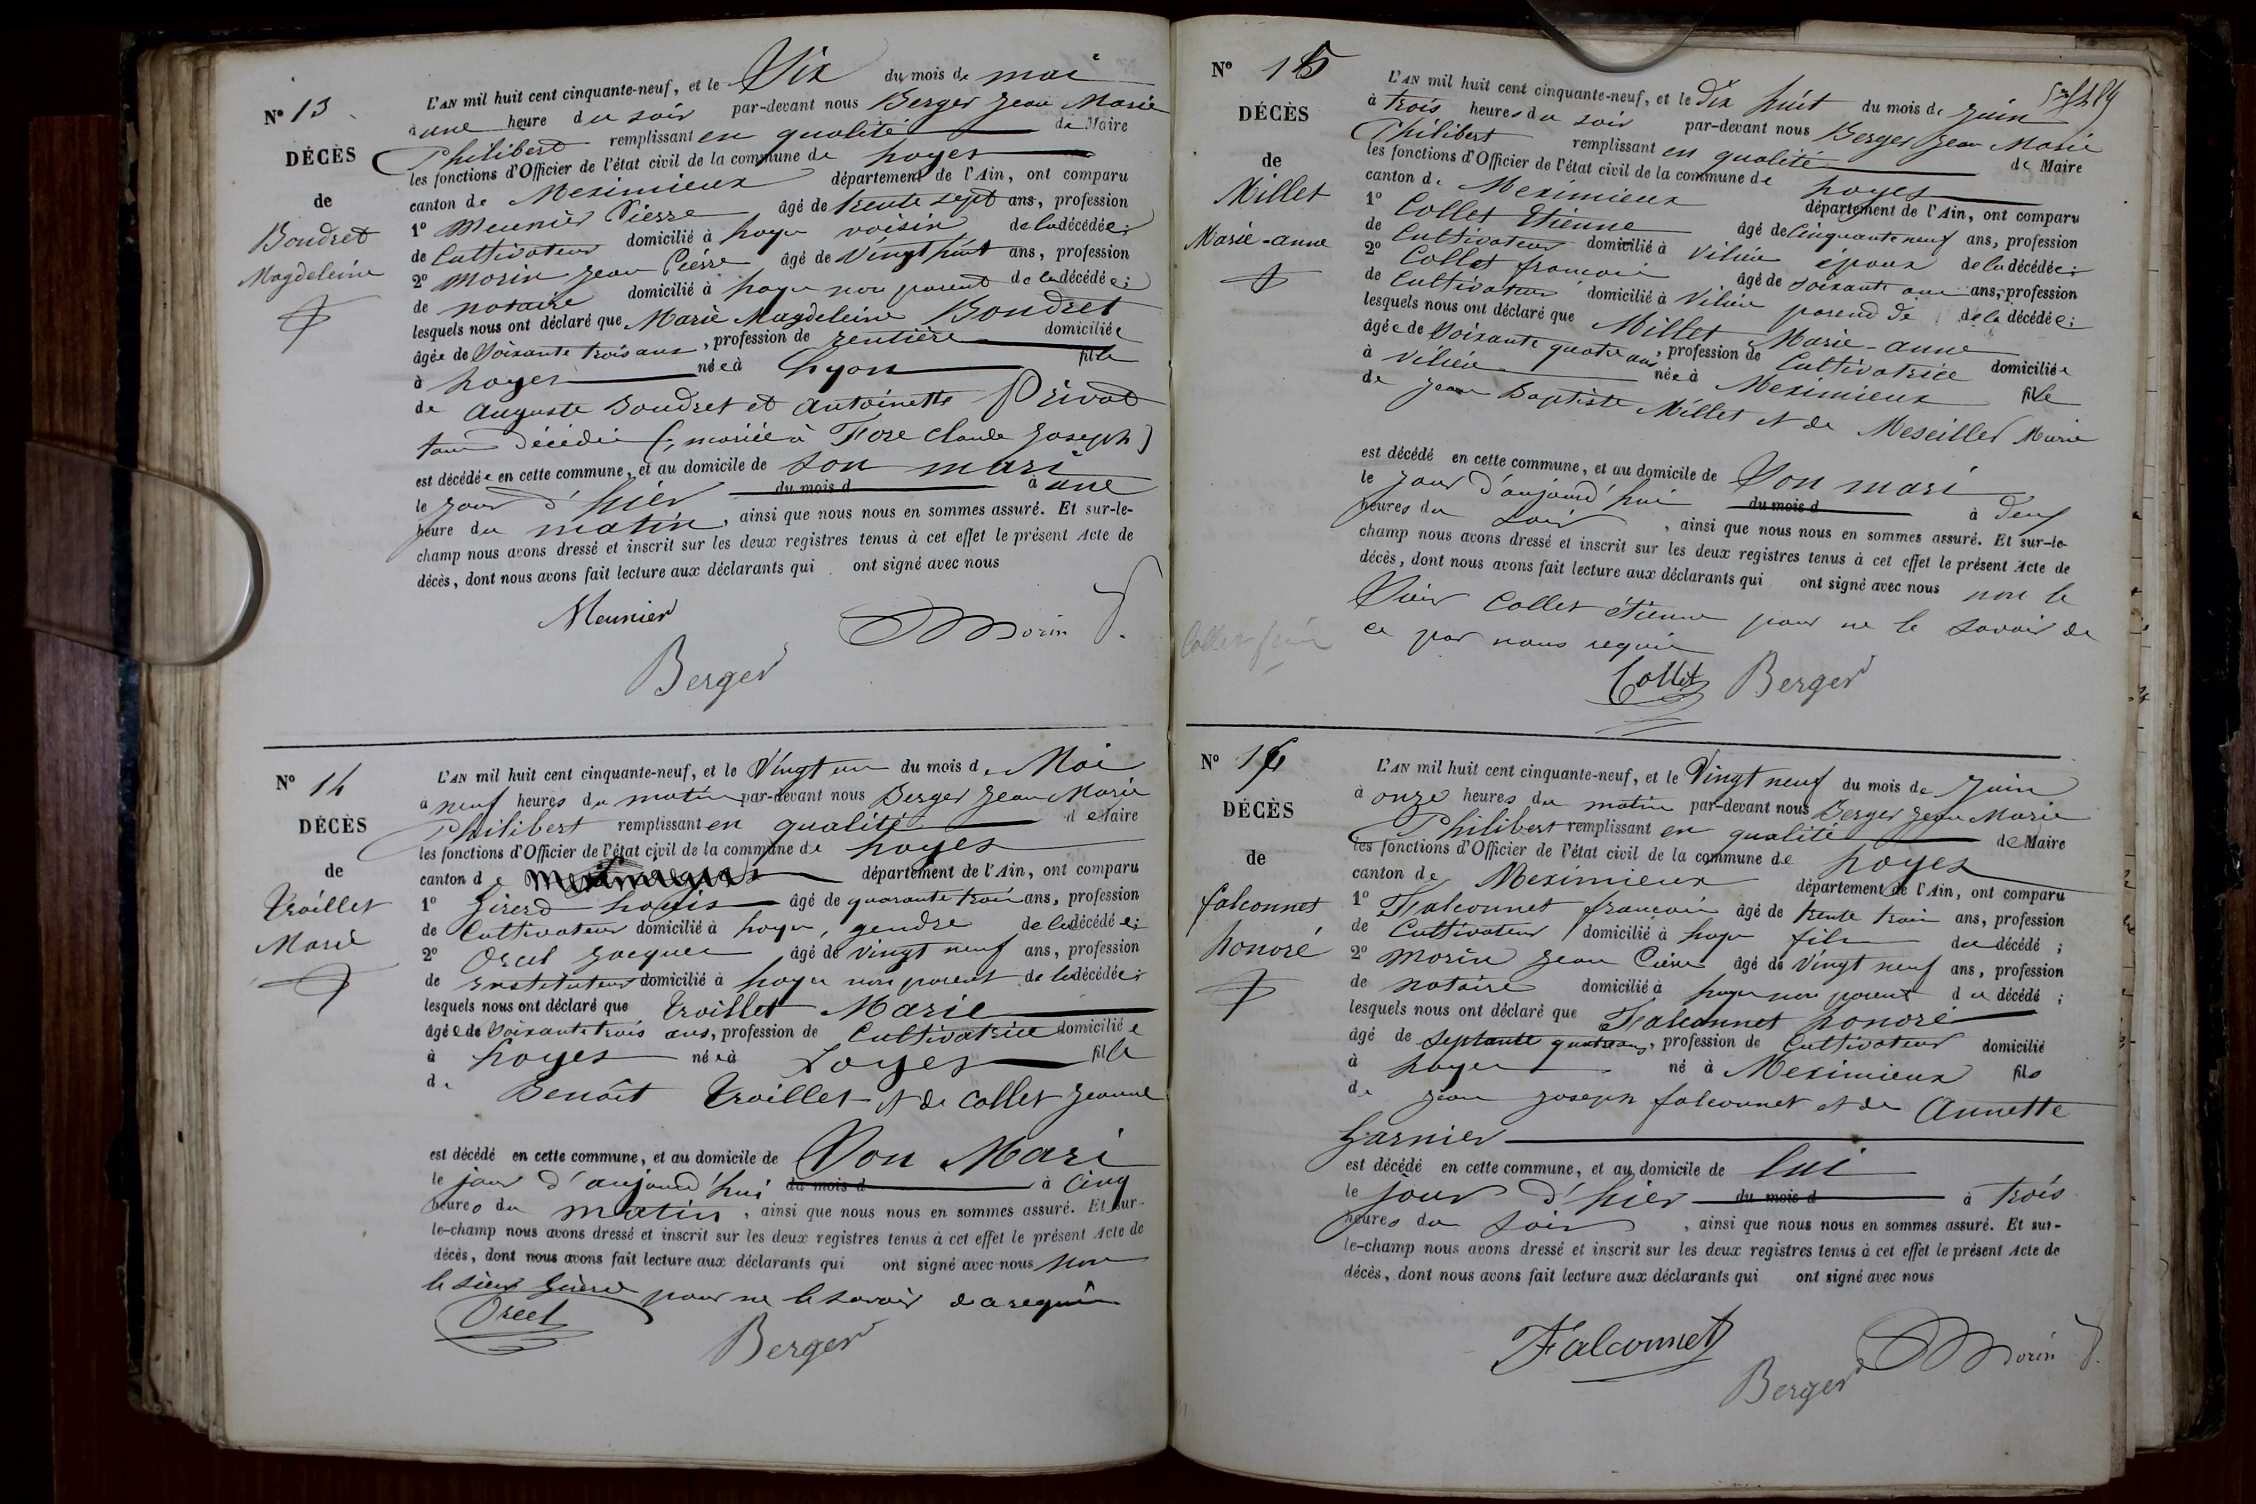 N° 13
DÉCÈS
de
Boudret
Magdeleine
L'AN mil huit cent cinquante-neuf, et le Six du mois de mai
à une heure du soir par-devant nous Berger Jean Marie
Philibert remplissant en qualité de Maire
les fonctions d'Officier de l'état civil de la commune de Loyes
canton de Meximieux département de l'Ain, ont comparu
1° Meunier Pierre âgé de trente sept ans, profession
de Cultivateur domicilié à Loyes voisin de la décédée;
2° Morin Jean Pierre âgé de Vingt huit ans, profession
de notaire domicilié à Loyes non parent de la décédée;
lesquels nous ont déclaré que Marie Magdeleine Boudret
âgée de Soixante trois ans, profession de rentière domiciliée
à Loyes née à Lyon fille
de Auguste Boudret et Antoinette Privat
tous décédés (, mariée à Fore Claude Joseph)
est décédée en cette commune, et au domicile de son mari
le jour d'hier du mois d à une
heure du matin, ainsi que nous nous en sommes assuré. Et sur-le-
champ nous avons dressé et inscrit sur les deux registres tenus à cet effet le présent Acte de
décès, dont nous avons fait lecture aux déclarants qui ont signé avec nous
Meunier
Morin
Berger
N° 14
DÉCÈS
de
Troillet
Marie
L'AN mil huit cent cinquante-neuf, et le Vingt un du mois de Mai
à neuf heures du matin par-devant nous Berger Jean Marie
Philibert remplissant en qualité de Maire
les fonctions d'Officier de l'état civil de la commune de Loyes
canton de Meximieux département de l'Ain, ont comparu
1° Girerd Louis âgé de quarante trois ans, profession
de Cultivateur domicilié à Loyes, gendre de la décédée;
2° Orcel Jacques âgé de vingt neuf ans, profession
de instituteur domicilié à Loyes non parent de la décédée;
lesquels nous ont déclaré que Troillet Marie
âgée de Soixante trois ans, profession de Cultivatrice domiciliée
à Loyes née à Loyes fille
de Benoît Troillet et de Collet Jeanne
est décédé en cette commune, et au domicile de Son Mari
le jour d'aujourd'hui du mois d à Cinq
heures du matin, ainsi que nous nous en sommes assuré. Et sur-
le-champ nous avons dressé et inscrit sur les deux registres tenus à cet effet le présent Acte de
décès, dont nous avons fait lecture aux déclarants qui ont signé avec nous non
le sieur Girerd pour ne le savoir de ce requis
Orcel
Berger
N° 15
DÉCÈS
de
Millet
Marie-anne
L'AN mil huit cent cinquante-neuf, et le dix huit du mois de Juin
à trois heures du soir par-devant nous Berger Jean Marie
Philibert remplissant en qualité de Maire
les fonctions d'Officier de l'état civil de la commune de Loyes
canton de Meximieux département de l'Ain, ont comparu
1° Collet Etienne âgé de Cinquante neuf ans, profession
de Cultivateur domicilié à Vilieu époux de la décédée;
2° Collet françois âgé de soixante ans, profession
de Cultivateur domicilié à Vilieu parend de de la décédée;
lesquels nous ont déclaré que Millet Marie-anne
âgée de Soixante quatre ans, profession de Cultivatrice domiciliée
à Vilieu née à Meximieux fille
de Jean Baptiste Millet et de Meseiller Marie
est décédé en cette commune, et au domicile de Son mari
le jour d'aujourd'hui du mois d à deux
heures du soir, ainsi que nous nous en sommes assuré. Et sur-le-
champ nous avons dressé et inscrit sur les deux registres tenus à cet effet le présent Acte de
décès, dont nous avons fait lecture aux déclarants qui ont signé avec nous non le
Sieur Collet étienne pour ne le savoir de
ce par nous requis
Collet
Berger
N° 16
DÉCÈS
de
falconnet
honoré
L'AN mil huit cent cinquante-neuf, et le Vingt neuf du mois de Juin
à onze heures du matin par-devant nous Berger Jean Marie
Philibert remplissant en qualité de Maire
les fonctions d'Officier de l'état civil de la commune de Loyes
canton de Meximieux département de l'Ain, ont comparu
1° Falconnet françois âgé de trente trois ans, profession
de Cultivateur domicilié à Loyes fils du décédé;
2° Morin Jean Pierre âgé de Vingt neuf ans, profession
de notaire domicilié à Loyes non parent du décédé;
lesquels nous ont déclaré que Falconnet honoré
âgé de septante quatre ans, profession de Cultivateur domicilié
à Loyes né à Meximieux fils
de Jean Joseph falconnet et de Annette
Garnier
est décédé en cette commune, et au domicile de lui
le jour d'hier du mois d à trois
heures du soir, ainsi que nous nous en sommes assuré. Et sur-
le-champ nous avons dressé et inscrit sur les deux registres tenus à cet effet le présent Acte de
décès, dont nous avons fait lecture aux déclarants qui ont signé avec nous
Falconnet
Morin
Berger